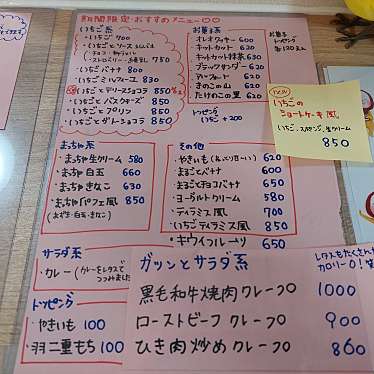 期間限定・おすすめメニュー○○
いちご系
・いちご 700
・いちごとソース
・いちごバナナ 800
・いちごパフェ風 830
・いちごとデリーズショコラ 850
・いちごとバスクチーズ 850
・いちごとプリン 850
・いちごとガトーショコラ 850
お菓子系
・オレオクッキー 600
・キットカット 620
・キットカット抹茶 630
・ブラックサンダー 620
・アルフォート 620
・きのこの山 620
・たけのこの里 620
トッピング
いちご +200
お菓子
トッピング
各130えん
いちごの
ショートケーキ風
いちご、スポンジ、生クリーム
850
まっちゃ系
・まっちゃ生クリーム 580
・まっちゃ白玉 660
・まっちゃきなこ 630
・まっちゃパフェ風 850
その他
・やきいも 620
・まるごとバナナ 650
・まるごとチョコバナナ 650
・ヨーグルトクリーム 580
・ティラミス風 700
・いちごティラミス風 850
・キウイフルーツ 650
サラダ系
・カレー(カレーをレタスで
つつみました)
トッピング
・やきいも 100
・羽二重もち 100
ガッツンとサラダ系
黒毛和牛焼肉クレープ 1000
ローストビーフクレープ 900
ひき肉炒めクレープ 860
レタスもたくさん
カロリー0!